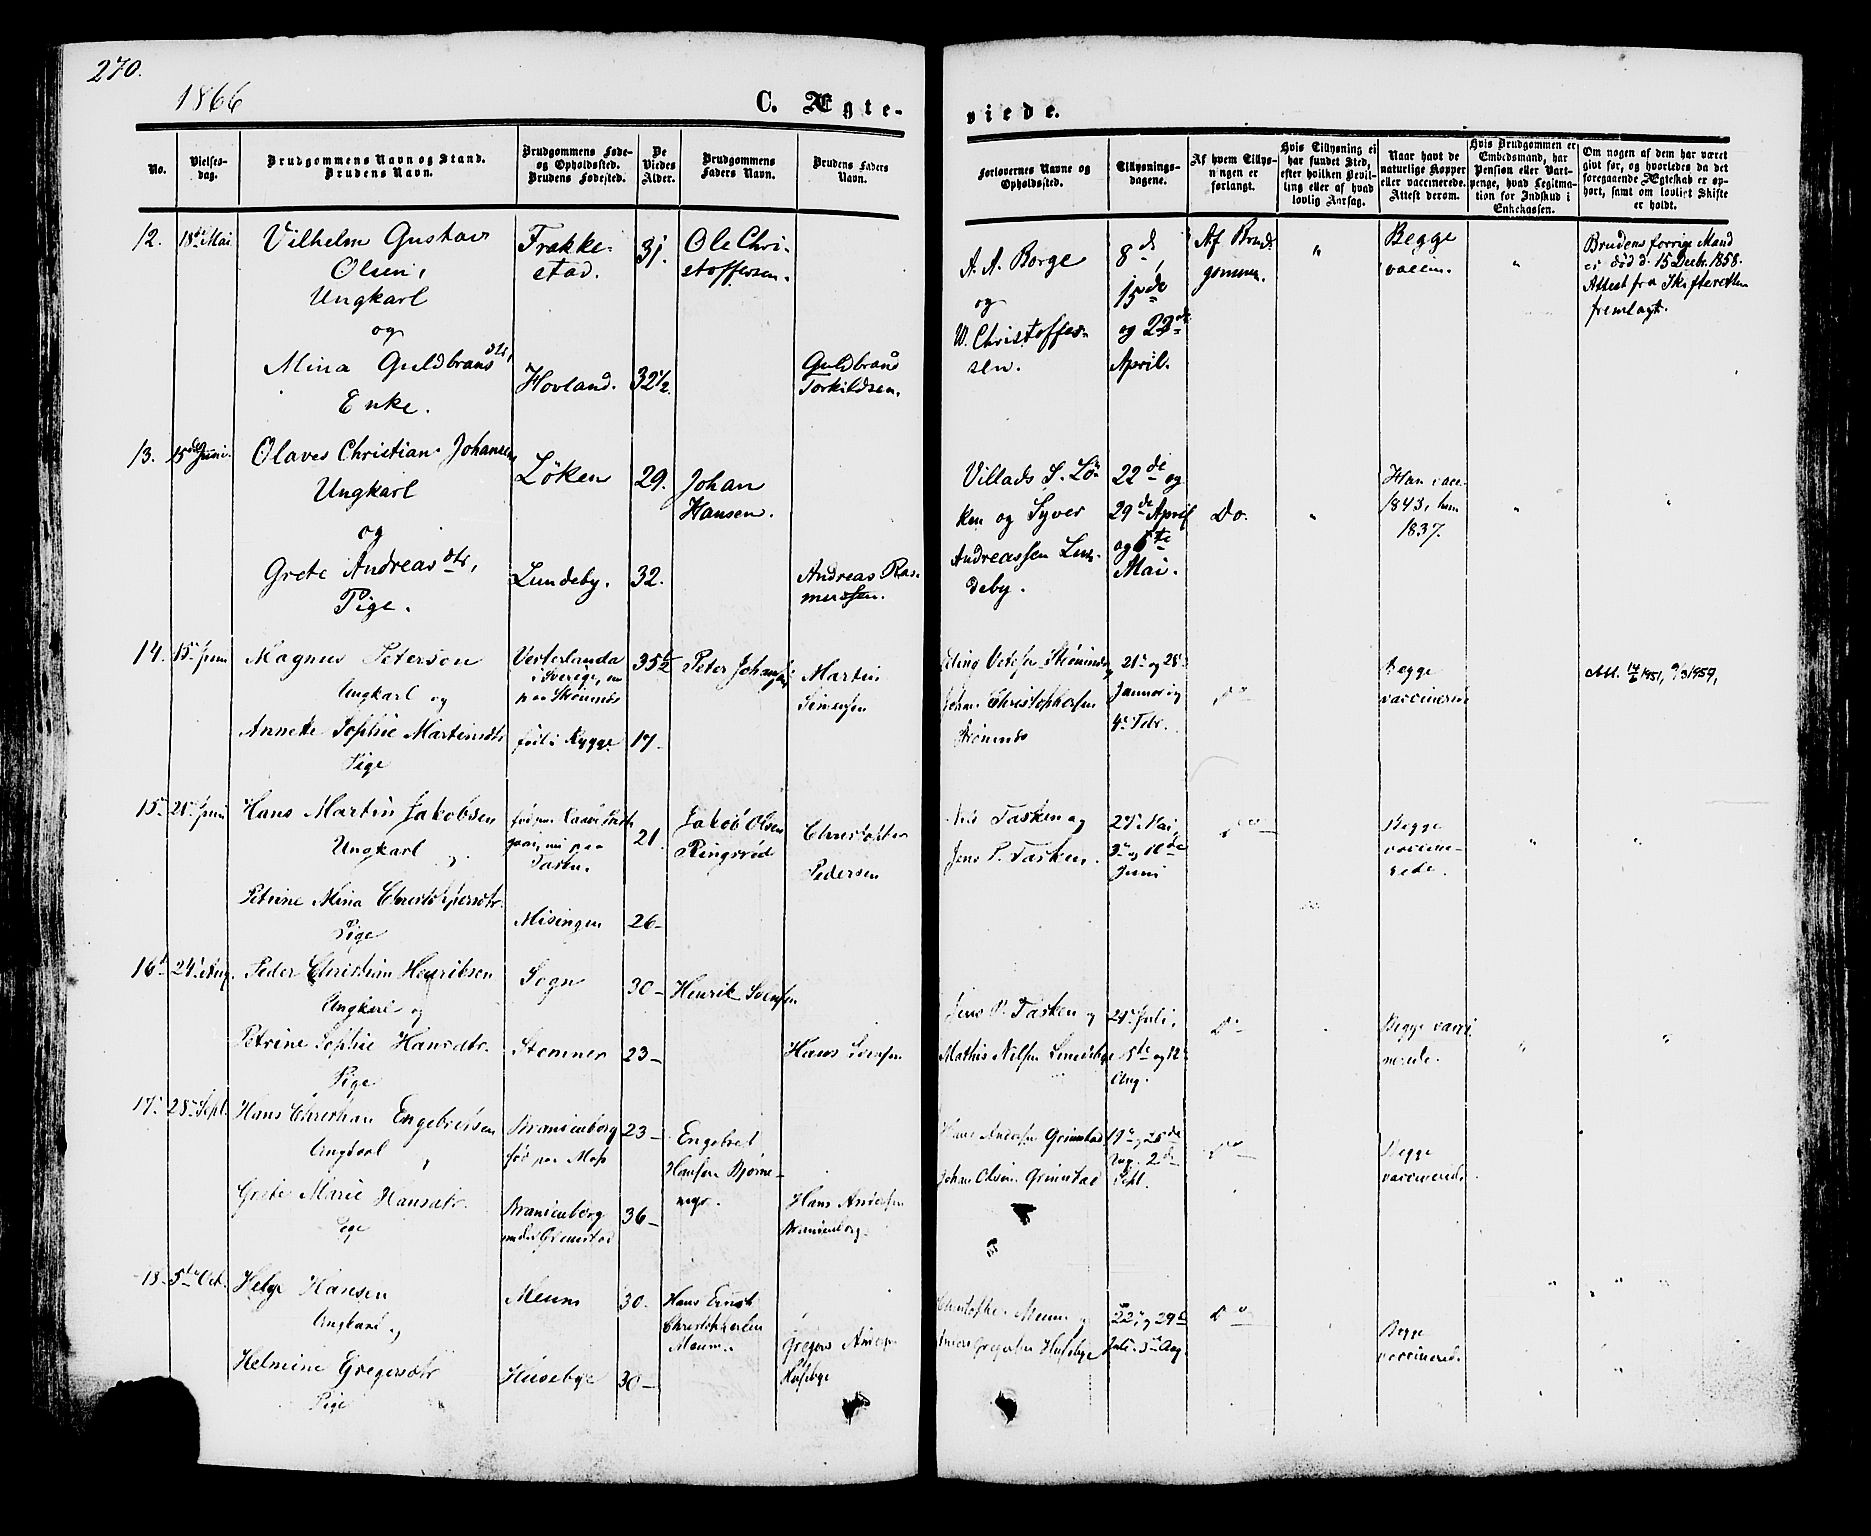 270.
1866
C. Ægte-
viede.
No.
Vielses-
dag.
Brudgommens Navn og Stand.
Brudens Navn.
Brudgommens Føde-
og Opholdssted.
Brudens Fødested.
De
Viedes
Alder.
Brudgommens
Faders Navn.
Brudens Faders
Navn.
Forlovernes Navne og
Opholdssted.
Tillysnings-
dagene.
Af hvem Tillys-
ningen er
forlangt.
Hvis Tillysning ei
har fundet Sted,
efter hvilken Bevil-
ling eller af hvad
lovlig Aarsag.
Naar havt de
naturlige Kopper
eller vaccinerede.
Attest derom.
Hvis Brudgommen er
Embedsmand, har
Pension eller Vart-
penge, hvad Legitima-
tion for Indskud i
Enkekassen.
Om nogen af dem har været
gift før, og hvorledes da det
foregaaende Ægteskab er op-
hørt, samt om lovligt Skifte
er holdt.
12.
18de Mai
Vilhelm Gustav
Olsen,
Ungkarl
og
Mina Guldbransdtr,
Enke.
Trøkke-
stad.
Hovland.
31.
32½.
Ole Chri-
stoffersen.
Guldbrand
Torkildsen.
A. A. Borge
og
W. Christoffer-
sen.
8de,
15de
og 22de
April.
Af Brud-
gommen.
"
Begge
vaccin.
"
Brudens forrige Mand
er død d. 15 Decbr. 1858.
Attest fra Skifteretten
fremlagt.
13.
15de Juni.
Olaves Christian Johansen
Ungkarl
og
Grete Andreasdtr,
Pige.
Løken
Lundeby.
29.
32.
Johan
Hansen.
Andreas Ras-
mussen.
Villads S. Lø-
ken og Syver
Andreassen Lun-
deby.
22de og
29de April
og 6te
Mai.
Do.
"
Han vacc.
1843, hun
1837.
"
"
14.
15. Juni
Magnus Peterson
Ungkarl og
Annette Sophie Martinsdtr
Pige
Vesterlanda
i Sverige, nu
paa Strømnæs
født i Rygge
35½
17-
Peter Johansen
Martin
Simensen
Johan Christophersen
Strømnæs
21de og 28de
Januar og
4de Febr.
Do
Begge
vaccinerede
Att. 14/6 1951, 9/3 1959,
15.
28. Juni
Hans Martin Jakobsen
Ungkarl
og
Petrine Mina Christophersdtr.
Pige
Tasken.
Misingen
21.
26-
Jakob Olsen
Ringsrød
Christopher
Pedersen
Nils Tasken og
Jens P. Tasken.
27de Mai,
3de og 10de
Juni
Do
Begge
vaccine-
rede.
"
"
16.
24de Aug.
Peder Christian Henriksen
Ungkarl og
Petrine Sophie Hansdtr.
Pige
Sogn
Stomner
30-
23-
Henrik Svensen
Hans Svensen
Jens P. Tasken og
Mathis Nilsen Lundeby
29de Juli,
5te og 12te
Aug.
Do
Begge vacci
nerede.
"
"
17.
28de Sept.
Hans Christian Engebretsen
Ungkarl
Grete Marie Hansdtr.
Pige
Branienborg
fød paa Moss
Branienborg
under Grimstad
23-
36-
Engebret
Hansen Bjørne-
myr.
Hans Andersen
Branienborg.
Hans Andersen Grimstad
Johan Olsen Grimstad
19de og 26de
Aug. 2de
Sept.
Do
Begge
vaccinered.
18.
5te Oct.
Helge Hansen
Ungkarl og
Helmine Gregersdtr
Pige
Meum
Husebye
30.
30-
Hans Ernst
Christophersen
Meum.
Gregers Anders
Husebye
Christopher Meum og
Andres Gregersen Husebye
22de og 29de
Juli. 5te Aug.
Do
Begge
vaccinered.
"
"
"